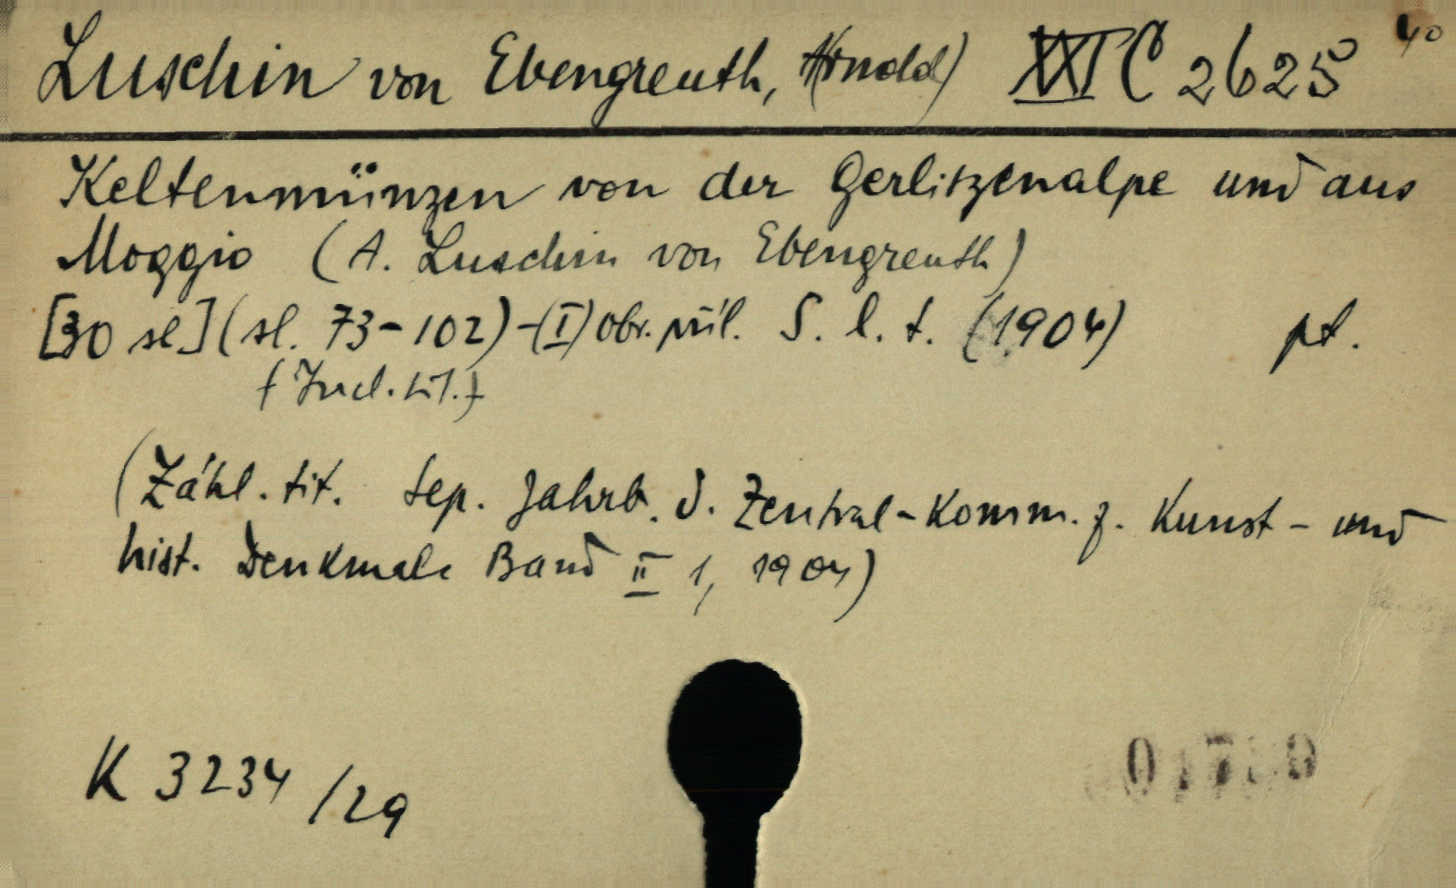 Luschin von Ebengreuth, Arnold) XXI C 2625 4o
Keltenmünzen von der Gerlitzenalpe und aus
Moggio (A. Luschin von Ebengreuth)
[30 sl] (sl. 73-102)-(I) obr. příl. S. l. t. (1904) pt.
(Incl. tit.)
(Záhl. tit. Sep. Jahrb. d. Zentral-Komm. f. Kunst- und
hist. Denkmale Band II 1, 1904)
K 3234/29